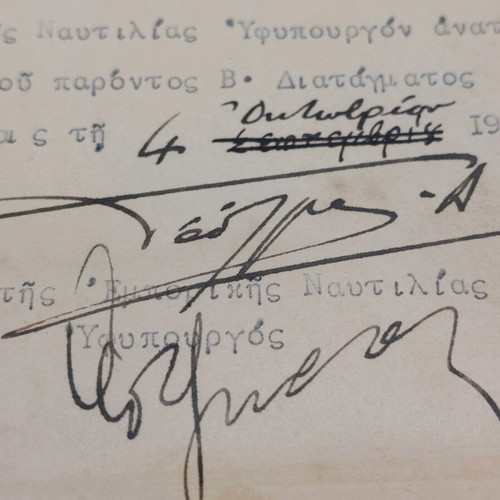 ς Ναυτιλίας Ὑφυπουργὸν ἀνατ
οῦ παρόντος Β. Διατάγματος
αι ς τῇ 4 Ὀκτωβρίου Σεπτεμβρίῳ 19
Γεώργιος Α
τῆς Ἐμπορικῆς Ναυτιλίας
Ὑφυπουργός